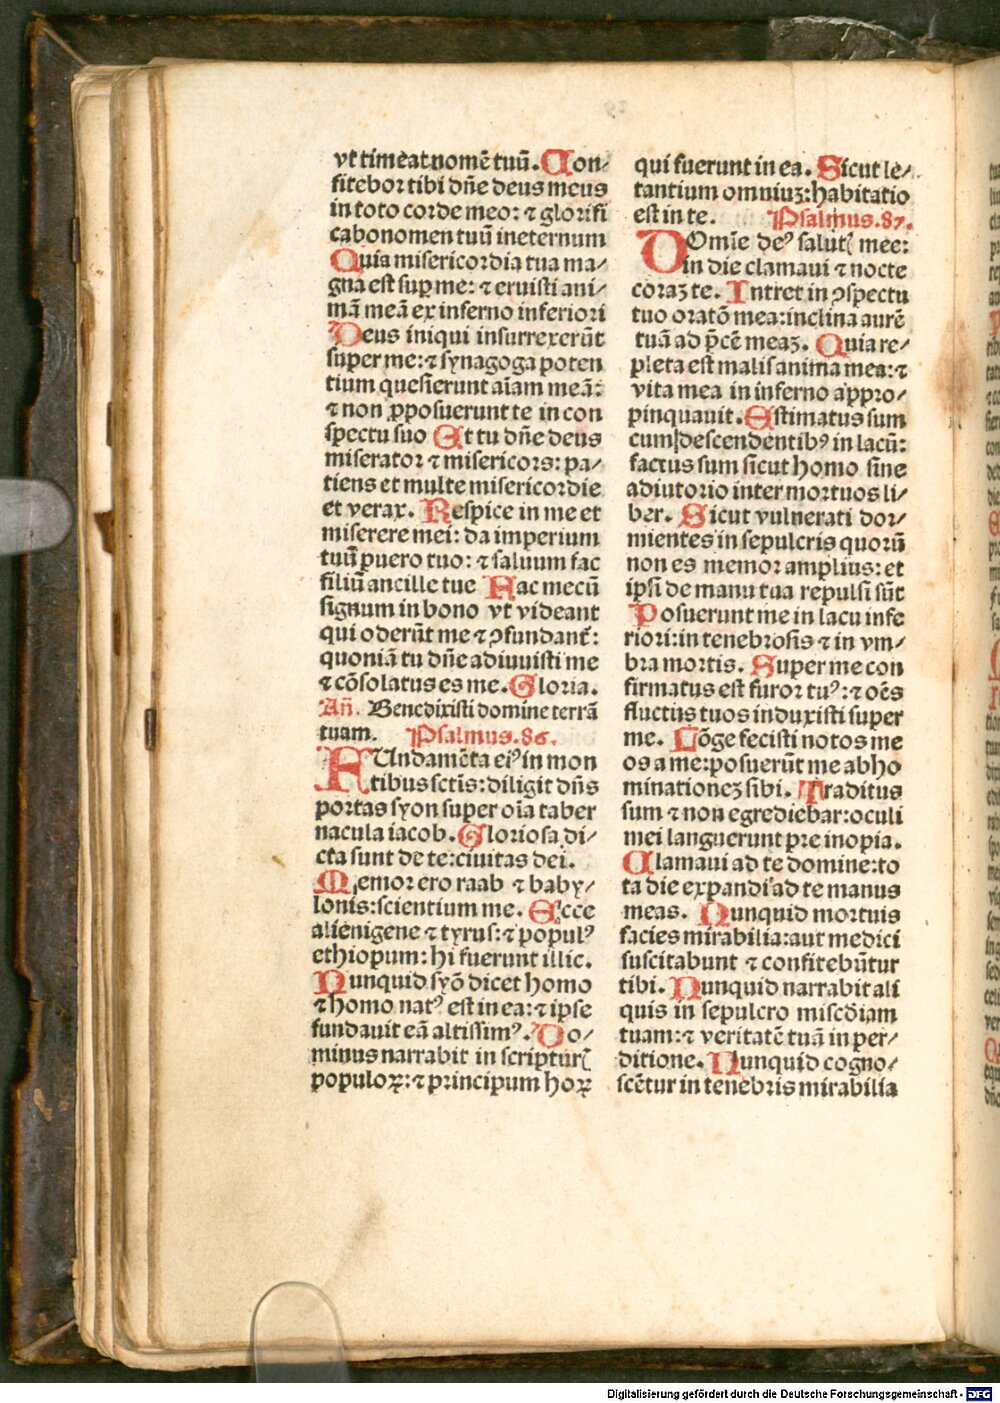 vt timeat nomē tuū. Con⸗
fitebor tibi dñe deus meus
in toto corde meo: ⁊ glorifi
cabo nomen tuū in eternum
Quia misericordia tua ma⸗
gna est suꝑ me: ⁊ eruisti ani⸗
mā meā ex inferno inferiori
Deus iniqui insurrexerūt
super me: ⁊ synagoga poten
tium quesierunt aīam meā:
⁊ non ꝓposuerunt te in con
spectu suo Et tu dñe deus
miserator ⁊ misericors: pa⸗
tiens et multe misericordie
et verax. Respice in me et
miserere mei: da imperium
tuū puero tuo: ⁊ saluum fac
filiū ancille tue Fac mecū
signum in bono vt videant
qui oderūt me ⁊ ꝯfundant᷑:
quoniā tu dñe adiuuisti me
⁊ cōsolatus es me. Gloria.
Añ. Benedixisti domine terrā
tuam. Psalmus.86.
FUndamēta eiꝰ in mon
tibus sctīs: diligit dñs
portas syon super oīa taber
nacula iacob. Gloriosa di⸗
cta sunt de te: ciuitas dei.
Memor ero raab ⁊ baby⸗
lonis: scientium me. Ecce
alienigene ⁊ tyrus: ⁊ populꝰ
ethiopum: hi fuerunt illic.
Nunquid syō dicet homo
⁊ homo natꝰ est in ea: ⁊ ipse
fundauit eā altissimꝰ. Do⸗
minus narrabit in scripturꝭ
populoꝝ: ⁊ principum hoꝝ
qui fuerunt in ea. Sicut le⸗
tantium omniuꝫ: habitatio
est in te. Psalmus.87.
DOmīe deꝰ salutꝭ mee:
in die clamaui ⁊ nocte
coraꝫ te. Intret in ꝯspectu
tuo oratō mea: inclina aurē
tuā ad p̄cē meaꝫ. Quia re⸗
pleta est malis anima mea: ⁊
vita mea in inferno appro⸗
pinquauit. Estimatus sum
cum descendentibꝰ in lacū:
factus sum sicut homo sine
adiutorio inter mortuos li⸗
ber. Sicut vulnerati dor⸗
mientes in sepulcris quorū
non es memor amplius: et
ipsi de manu tua repulsi sūt
Posuerunt me in lacu infe
riori: in tenebrosis ⁊ in vm⸗
bra mortis. Super me con
firmatus est furor tuꝰ: ⁊ oēs
fluctus tuos induxisti super
me. Lōge fecisti notos me
os a me: posuerūt me abho
minationeꝫ sibi. Traditus
sum ⁊ non egrediebar: oculi
mei languerunt pre inopia.
Clamaui ad te domine: to
ta die expandi ad te manus
meas. Nunquid mortuis
facies mirabilia: aut medici
suscitabunt ⁊ confitebūtur
tibi. Nunquid narrabit ali
quis in sepulcro misc̄diam
tuam: ⁊ veritatē tuā in per⸗
ditione. Nunquid cogno⸗
scētur in tenebris mirabilia
Digitalisierung gefördert durch die Deutsche Forschungsgemeinschaft - DFG